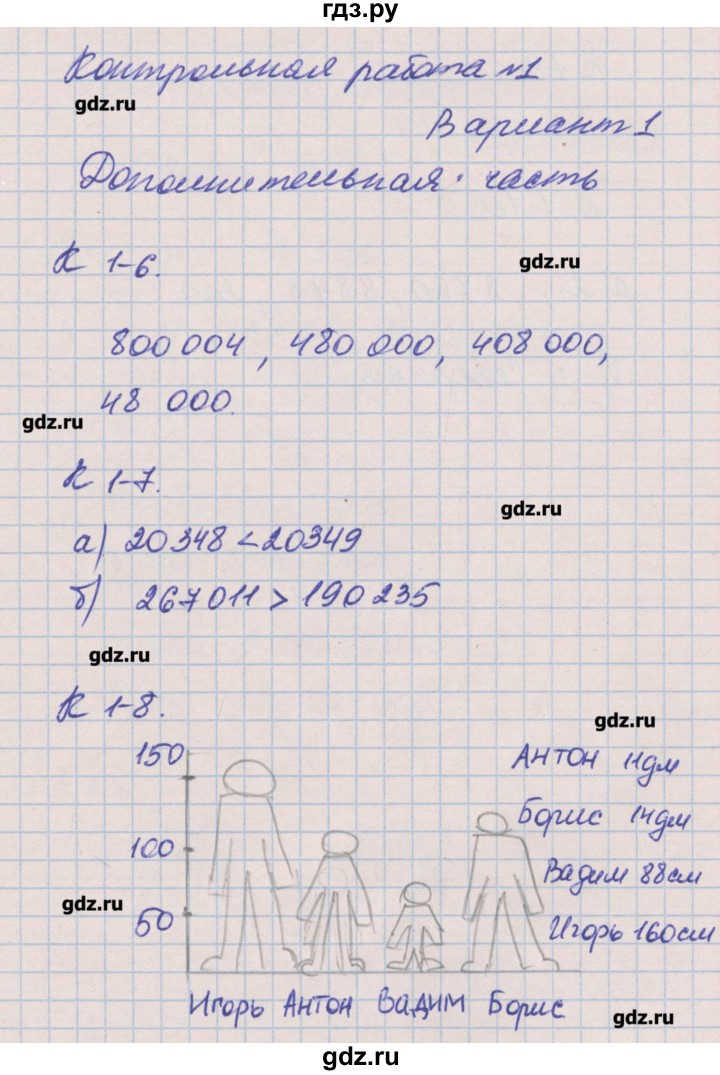 гдз.ру
Контрольная работа №1
gdz.ru
Вариант 1
Дополнительная часть
К 1-6.
gdz.ru
800 004, 480 000, 408 000,
48 000.
gdz.ru
К 1-7.
gdz.ru
а) 20348 < 20349
б) 267011 > 190235
gdz.ru
К 1-8.
gdz.ru
150
Антон 11дм
100
Борис 14дм
Вадим 88см
gdz.ru
50
Игорь 160см
Игорь Антон Вадим Борис
gdz.ru
gdz.ru